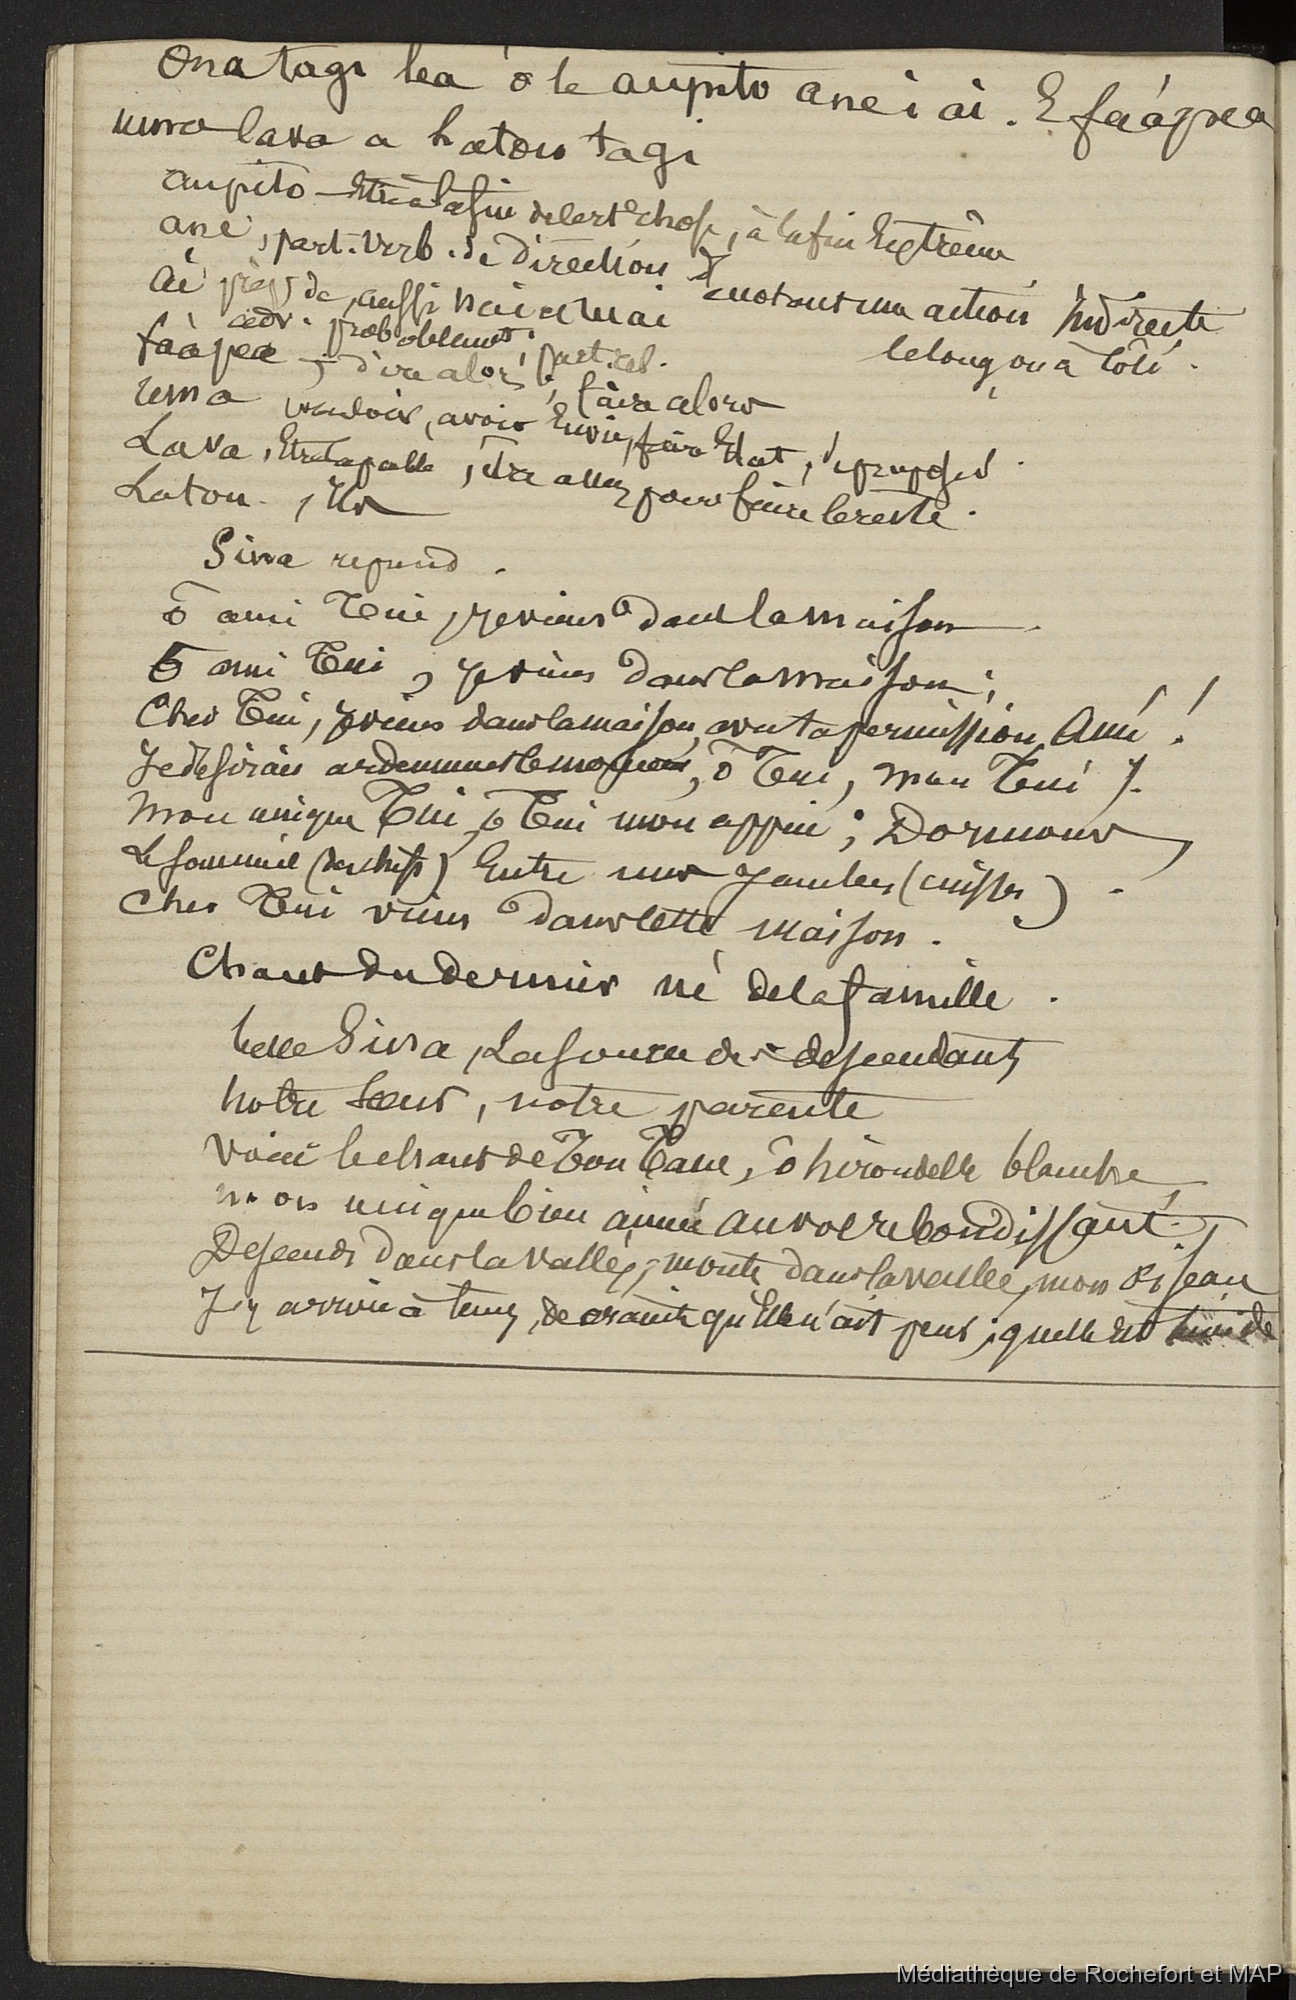 Ona tagi lea o le aupito ane i ai. E faápea
uma lava a latou tagi
aupito - Etre à la fin de cert. chose, à la fin Extrême
ane, part. verb. de direction dénotant une action Indirecte
le long ou à côté.
ai près de, aussi nai a mai
adv. probablement; part. rel.
faápea, dire alors, faire alors
uma vouloir, avoir Envie, faire Etat, se proposer.
Lava, Etre Capable, être assez pour faire le reste.
Latou. , Ils
Sina repond.
ô ami Tui, je viens dans la maison.
ô ami Tui, je viens dans la maison;
Cher Tui, je viens dans la maison, avec ta permission Ami!!
Je desirais ardemment, ô Tui, mon Tui!
Mon unique Tui, ô Tui mon appui; Dormons,
Le sommeil (des chefs) Entre mes jambes (cuisses).
Cher Tui viens dans cette maison.
Chant du dernier né de la famille.
belle Sina, La source des descendants
notre soeur, notre parente
voici le chant de Ton Tane, ô hirondelle blanche
mon unique bien aimée au vol rebondissant;
Descends dans la vallée, monte dans la vallée, mon oiseau
J'y arrive à temps, de crainte qu'Elle n'ait peur, qu'elle est timide
Médiathèque de Rochefort et MAP